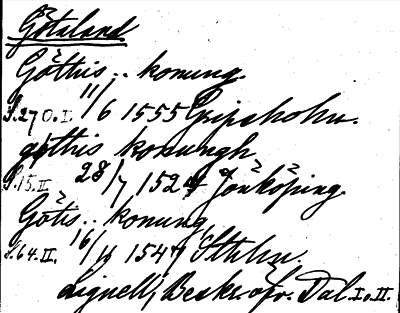 Götaland.
Göthis.. konung.
S.270.I. 11/6 1555 Gripsholm.
gøthis konungh
S.15.II. 28/7 1524 Jönköping.
Götis.. konung
S.64.II. 16/11 1547 Sthlm.
Lignell, Beskr. öfr. Dal. I o. II.